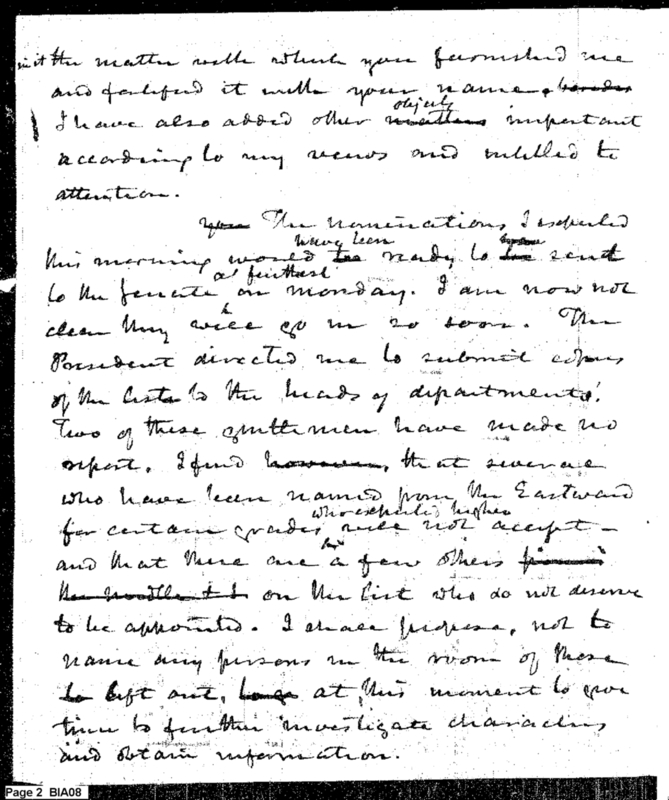 in it the matter with which you furnished me
and fortified it with your name, besides
objects
I have also added other matters important
according to my views and intitled to
attention.
The nominations, I expected
have been
this morning would be ready to be sent
at furthest
to the Senate on monday. I am now not
clear they will go in so soon. The
President directed me to submit copies
of the lists to the heads of departments.
Two of these gentlemen have made no
report. I find however, that several
who have been named from the Eastward
who expected higher
for certain grades will not accept –
and that there are a few others
the needle on the list who do not deserve
to be appointed. I shall propose, not to
name any persons in the room of these
to left out, at this moment to give
time to further investigate characters
and obtain information.
Page 2 BIA08